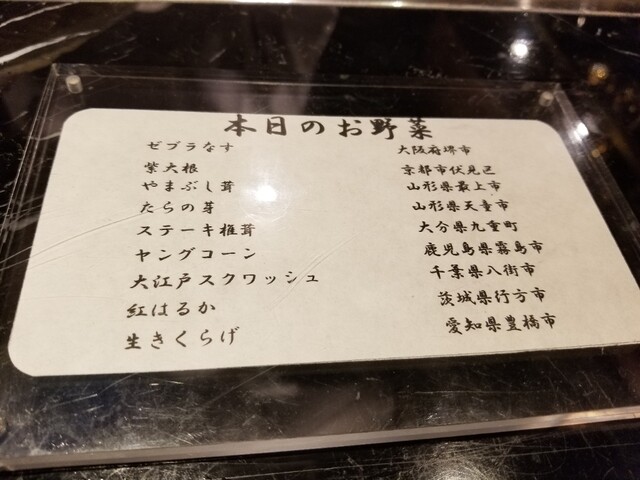 本日のお野菜
ゼブラなす 大阪府堺市
紫大根 京都市伏見区
やまぶし茸 山形県最上市
たらの芽 山形県天童市
ステーキ椎茸 大分県九重町
ヤングコーン 鹿児島県霧島市
大江戸スクワッシュ 千葉県八街市
紅はるか 茨城県行方市
生きくらげ 愛知県豊橋市